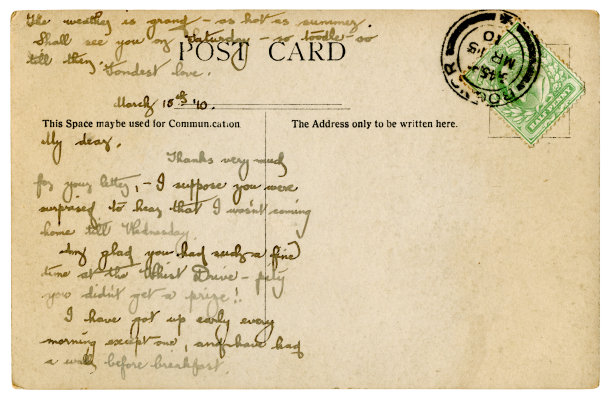 The weather is grand – as hot as summer.
Shall see you on Saturday – so toodle-oo
till then. Fondest love.
POST CARD
March 15th '10.
This Space may be used for Communication
The Address only to be written here.
My dear,
Thanks very much
for your letter, – I suppose you were
surprised to hear that I wasn't coming
home till Wednesday.
Am glad you had such a fine
time at the Whist Drive – pity
you didn't get a prize!!
I have got up early every
morning except one, and have had
a walk before breakfast.
MR 15
10
HALF PENNY